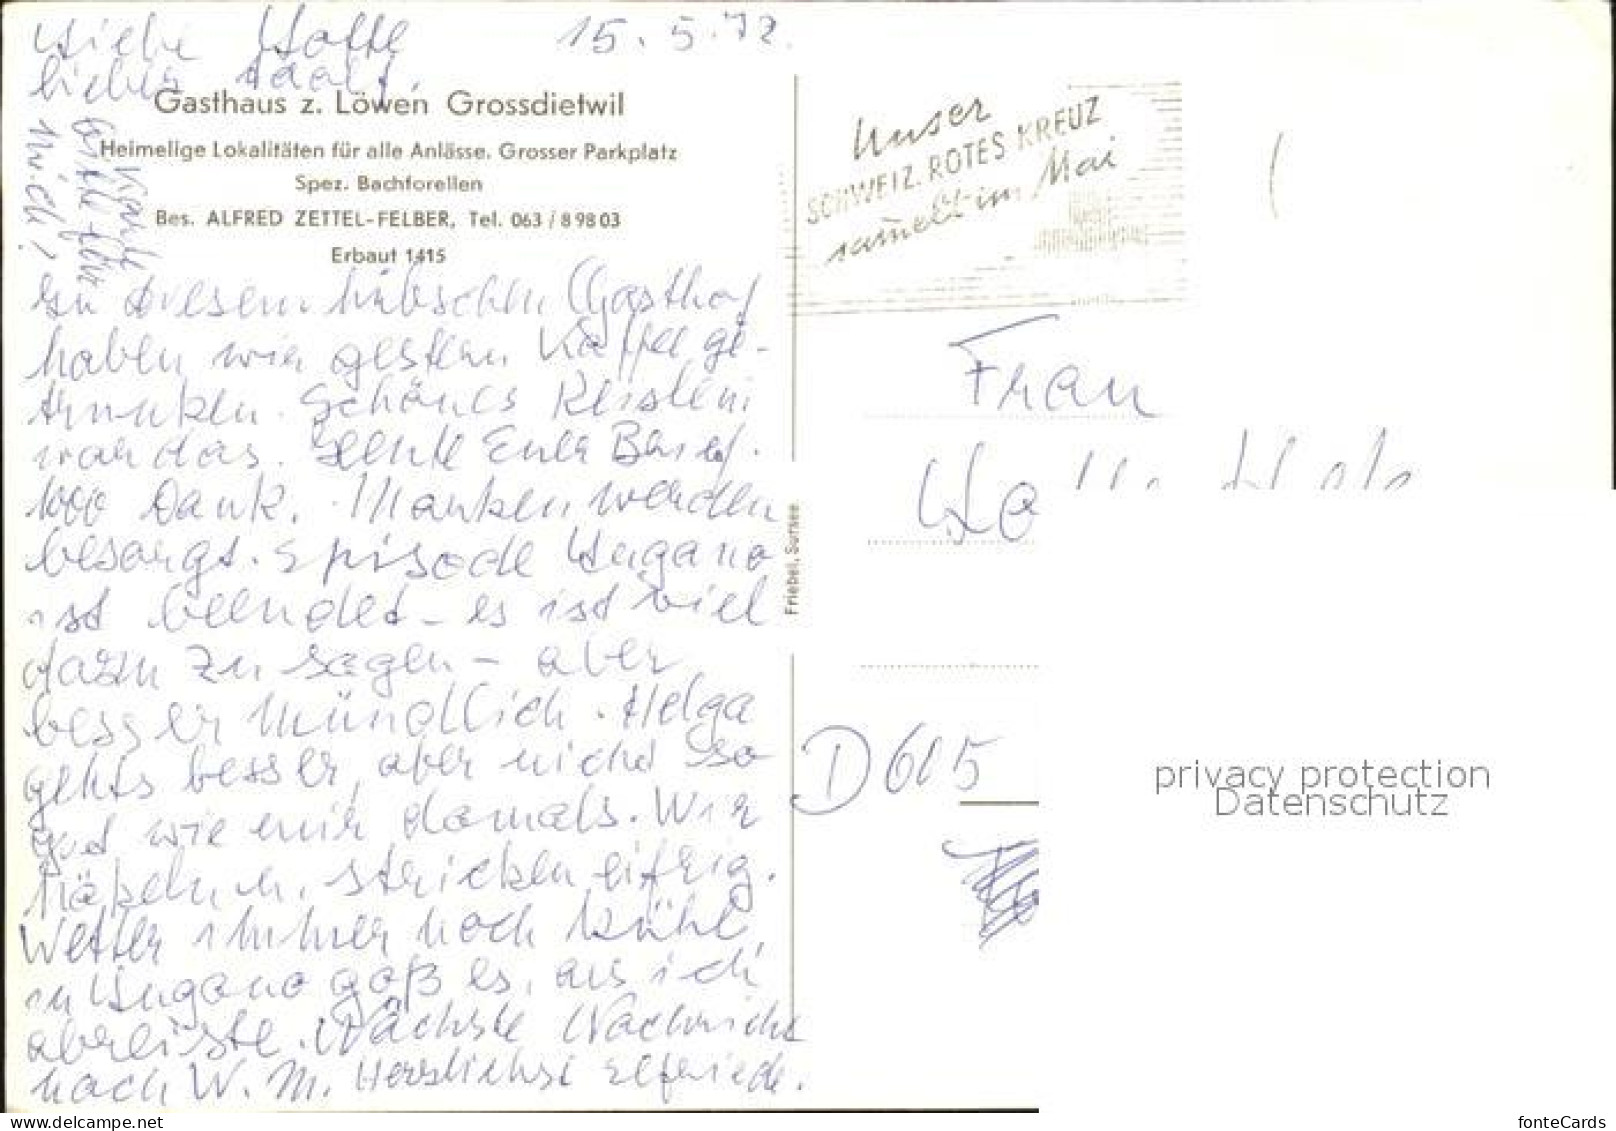 Liebe Lotte 15.5.72.
lieber Adolf,
Gasthaus z. Löwen Grossdietwil
Heimelige Lokalitäten für alle Anlässe. Grosser Parkplatz
Spez. Bachforellen
Bes. ALFRED ZETTEL-FELBER, Tel. 063 / 8 98 03
Erbaut 1415
Karte
mich!
In diesem hübschen Gasthof
haben wir gestern Kaffee ge-
trunken. Schönes Reislein
war das. Heute Euer Brief.
1000 Dank. Marken werden
besorgt. Episode Lugano
ist beendet – es ist viel
dazu zu sagen – aber
besser mündlich. Helga
gehts besser, aber nicht so
gut wie mir damals. Wir
häkeln u. stricken eifrig.
Wetter immer noch kühl,
in Lugano goß es, als ich
abreiste. Nächste Nachricht
nach W. M. Herzlichst Elfriede.
Friebel, Sursee
Unser
SCHWEIZ. ROTES KREUZ
sammelt im Mai
Frau
D 605
privacy protection
Datenschutz
www.delcampe.net
fonteCards